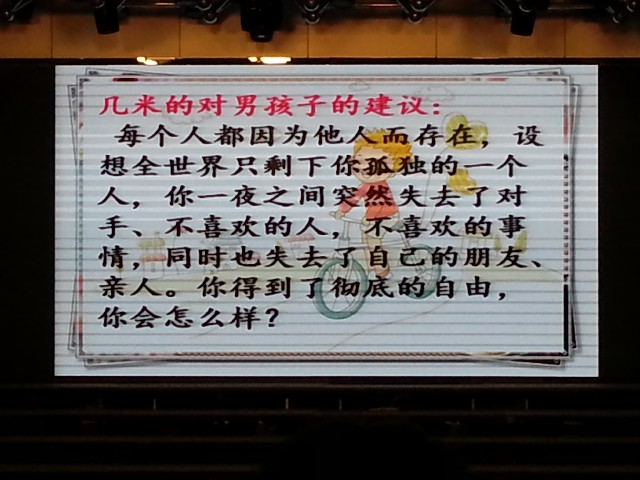 几米的对男孩子的建议：
每个人都因为他人而存在，设
想全世界只剩下你孤独的一个
人，你一夜之间突然失去了对
手、不喜欢的人，不喜欢的事
情，同时也失去了自己的朋友、
亲人。你得到了彻底的自由，
你会怎么样？